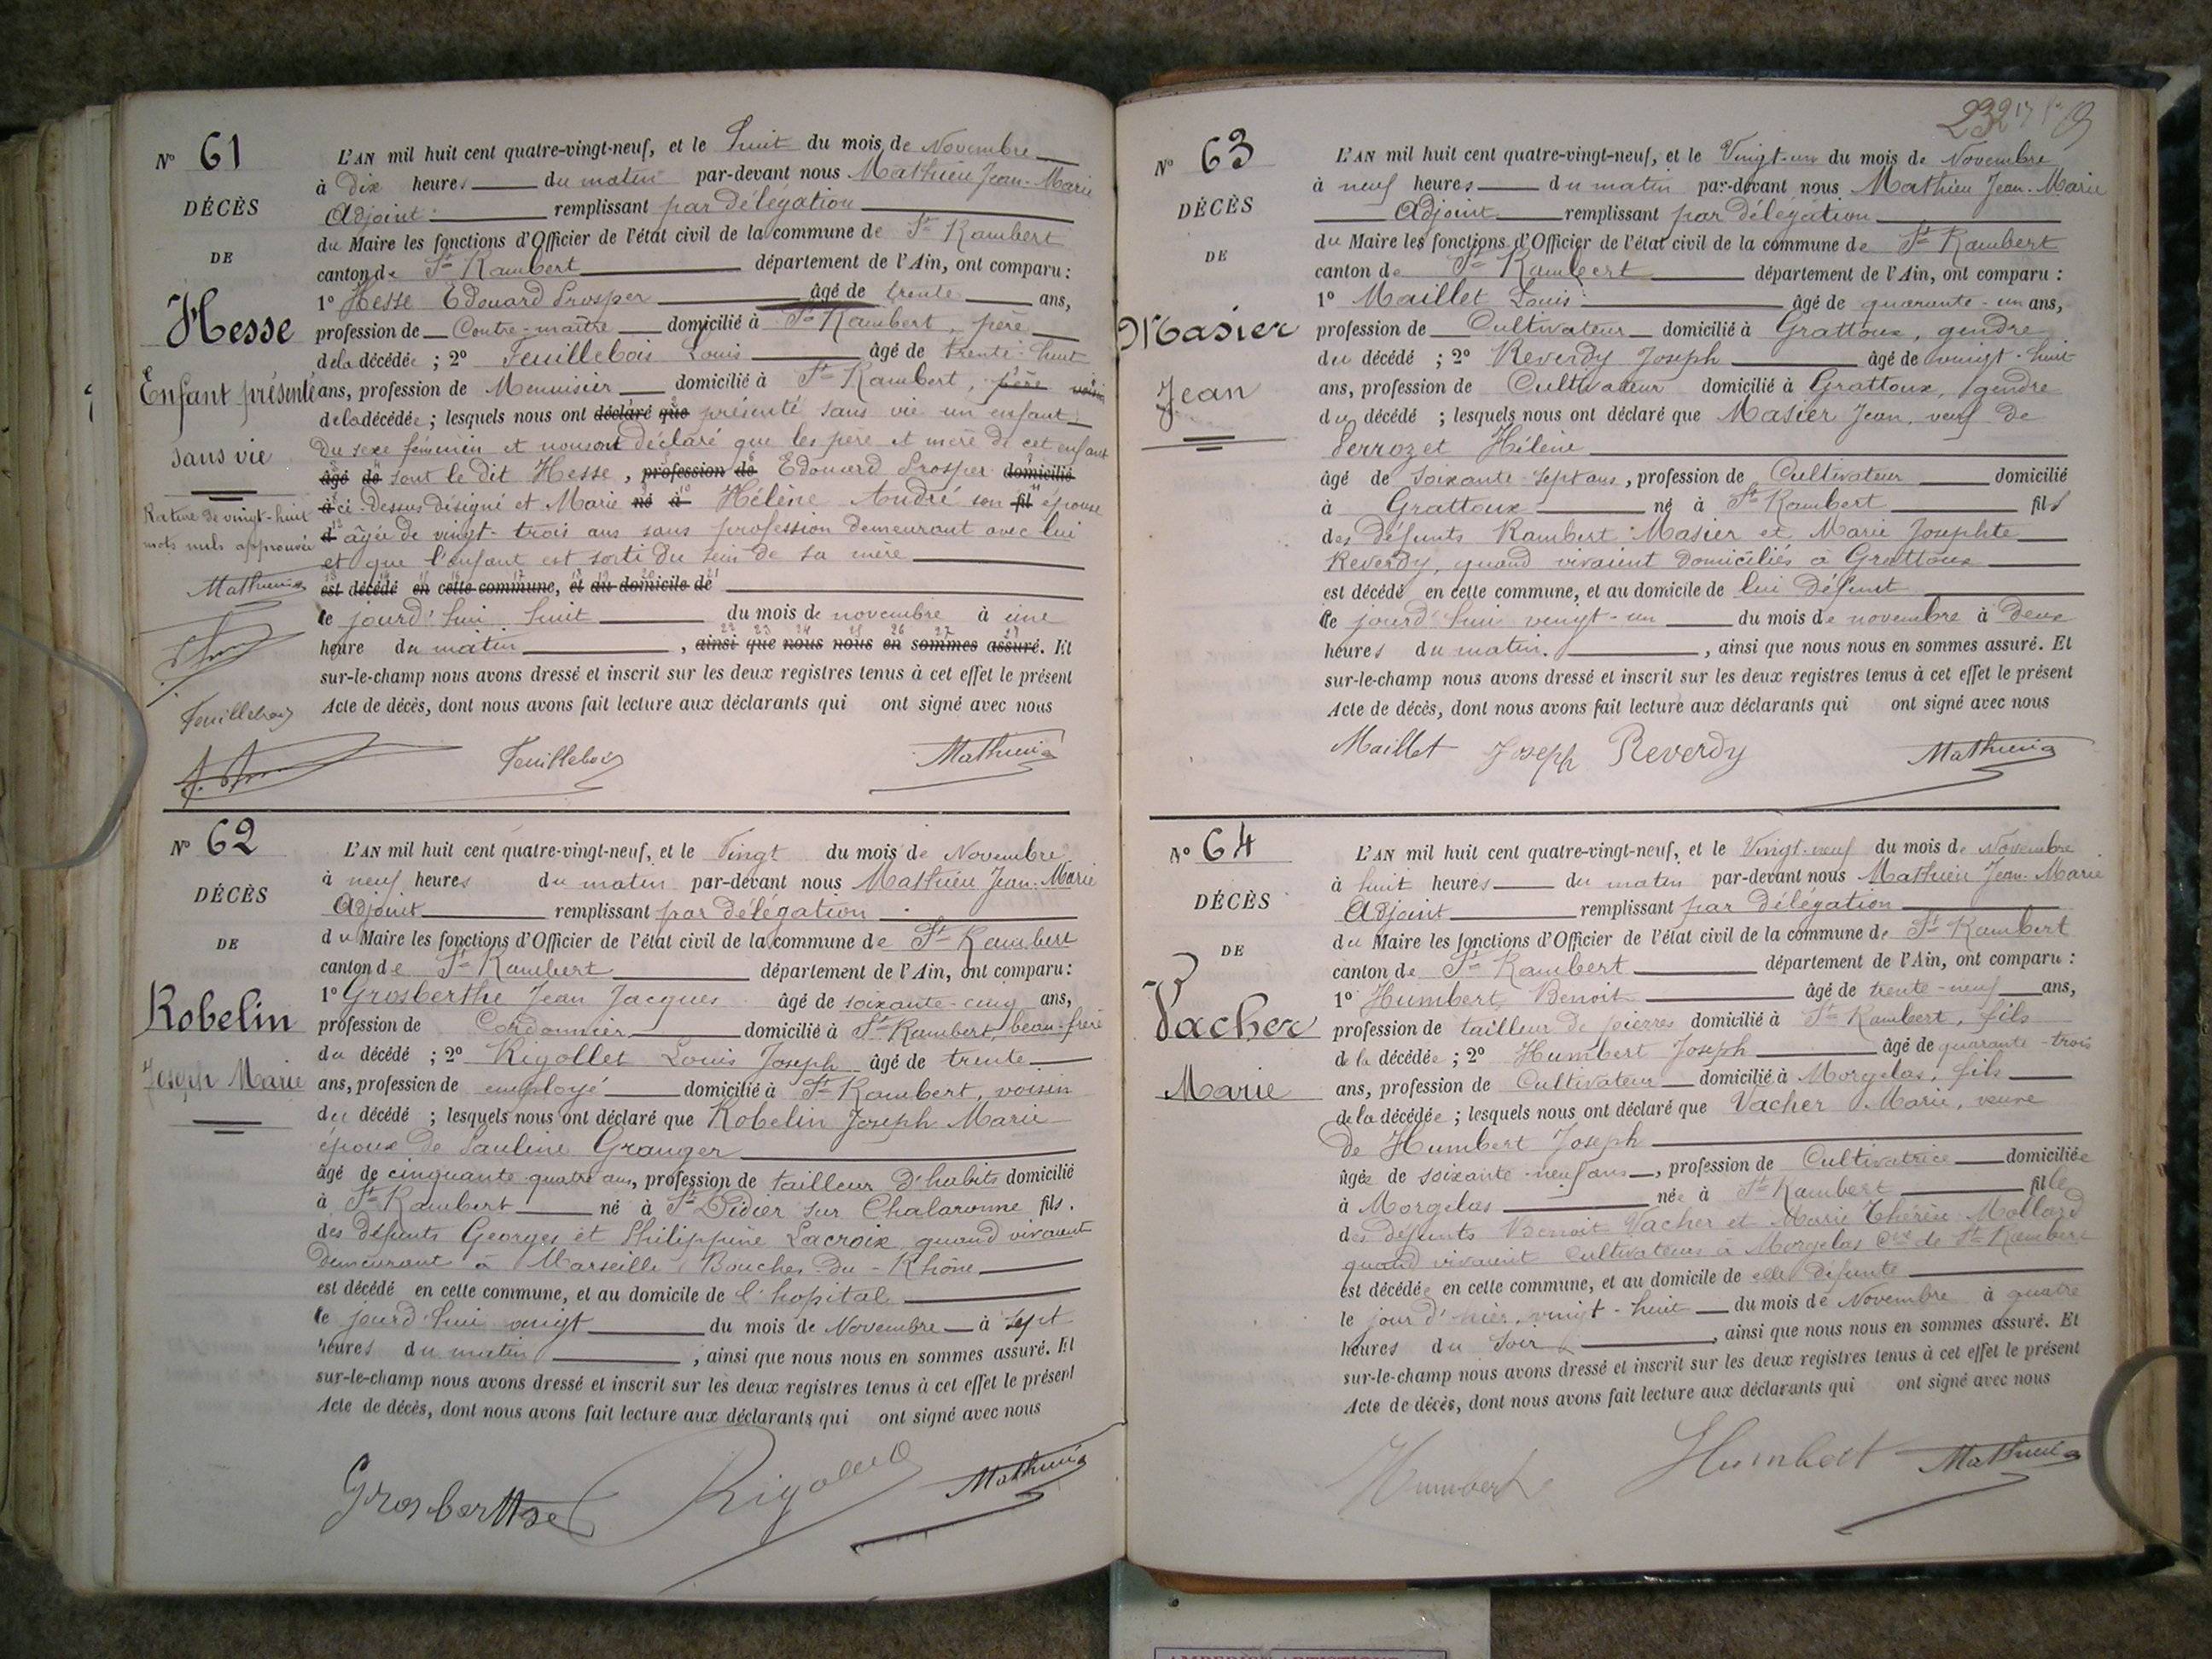 N° 61
DÉCÈS
DE
Hesse
Enfant présenté
sans vie
Rature de vingt-huit
mots nuls approuvée
Mathieu
Feuillebois
L'AN mil huit cent quatre-vingt-neuf, et le huit du mois de Novembre
à Dix heures du matin par-devant nous Mathieu Jean-Marie
Adjoint remplissant par délégation
du Maire les fonctions d'Officier de l'état civil de la commune de St Rambert
canton de St Rambert département de l'Ain, ont comparu :
1° Hesse Edouard Prosper âgé de trente ans,
profession de Contre-maître domicilié à St Rambert, père
de la décédée ; 2° Feuillebois Louis âgé de trente-huit
ans, profession de Menuisier domicilié à St Rambert, père voisin
de la décédée ; lesquels nous ont déclaré que présenté sans vie un enfant
du sexe féminin et nous ont déclaré que les père et mère de cet enfant
âgé de sont le dit Hesse, profession de Edouard Prosper domicilié
à ci-dessus désigné et Marie né à Hélène André son fil épouse
d âgée de vingt-trois ans sans profession demeurant avec lui
et que l'enfant est sorti du sein de sa mère
est décédé en cette commune, et au domicile de
le jourd'hui huit du mois de novembre à une
heure du matin, ainsi que nous nous en sommes assuré. Et
sur-le-champ nous avons dressé et inscrit sur les deux registres tenus à cet effet le présent
Acte de décès, dont nous avons fait lecture aux déclarants qui ont signé avec nous
Feuillebois Mathieu
N° 62
DÉCÈS
DE
Robelin
Joseph Marie
L'AN mil huit cent quatre-vingt-neuf, et le Vingt du mois de Novembre
à neuf heures du matin par-devant nous Mathieu Jean-Marie
Adjoint remplissant par délégation
du Maire les fonctions d'Officier de l'état civil de la commune de St Rambert
canton de St Rambert département de l'Ain, ont comparu :
1° Grosberthe Jean Jacques âgé de soixante-cinq ans,
profession de Cordonnier domicilié à St Rambert, beau-frère
du décédé ; 2° Rigollet Louis Joseph âgé de trente
ans, profession de employé domicilié à St Rambert, voisin
du décédé ; lesquels nous ont déclaré que Robelin Joseph Marie
époux de Pauline Granger
âgé de cinquante-quatre ans, profession de tailleur d'habits domicilié
à St Rambert né à St Didier sur Chalaronne fils
des défunts Georges et Philippine Lacroix quand vivaient
demeurant à Marseille Bouches-du-Rhône
est décédé en cette commune, et au domicile de l'hopital
le jourd'hui vingt du mois de Novembre à sept
heures du matin, ainsi que nous nous en sommes assuré. Et
sur-le-champ nous avons dressé et inscrit sur les deux registres tenus à cet effet le présent
Acte de décès, dont nous avons fait lecture aux déclarants qui ont signé avec nous
Grosberthe Rigollet Mathieu
232
N° 63
DÉCÈS
DE
Masier
Jean
L'AN mil huit cent quatre-vingt-neuf, et le Vingt-un du mois de Novembre
à neuf heures du matin par-devant nous Mathieu Jean-Marie
Adjoint remplissant par délégation
du Maire les fonctions d'Officier de l'état civil de la commune de St Rambert
canton de St Rambert département de l'Ain, ont comparu :
1° Maillet Louis âgé de quarante-un ans,
profession de Cultivateur domicilié à Grattoux, gendre
du décédé ; 2° Reverdy Joseph âgé de vingt-huit
ans, profession de Cultivateur domicilié à Grattoux, gendre
du décédé ; lesquels nous ont déclaré que Masier Jean, veuf de
Perrozet Hélène
âgé de soixante-sept ans, profession de Cultivateur domicilié
à Grattoux né à St Rambert fils
des défunts Rambert Masier et Marie Josephte
Reverdy, quand vivaient domiciliés à Grattoux
est décédé en cette commune, et au domicile de lui défunt
le jourd'hui vingt-un du mois de novembre à deux
heures du matin, ainsi que nous nous en sommes assuré. Et
sur-le-champ nous avons dressé et inscrit sur les deux registres tenus à cet effet le présent
Acte de décès, dont nous avons fait lecture aux déclarants qui ont signé avec nous
Maillet Joseph Reverdy Mathieu
N° 64
DÉCÈS
DE
Vacher
Marie
L'AN mil huit cent quatre-vingt-neuf, et le Vingt-neuf du mois de Novembre
à huit heures du matin par-devant nous Mathieu Jean-Marie
Adjoint remplissant par délégation
du Maire les fonctions d'Officier de l'état civil de la commune de St Rambert
canton de St Rambert département de l'Ain, ont comparu :
1° Humbert Benoit âgé de trente-neuf ans,
profession de tailleur de pierres domicilié à St Rambert, fils
de la décédée ; 2° Humbert Joseph âgé de quarante-trois
ans, profession de Cultivateur domicilié à Morgelas, fils
de la décédée ; lesquels nous ont déclaré que Vacher Marie, veuve
de Humbert Joseph
âgée de soixante-neuf ans, profession de Cultivatrice domiciliée
à Morgelas née à St Rambert fille
des défunts Benoit Vacher et Marie Thérèse Mollard
quand vivaient cultivateurs à Morgelas Cne de St Rambert
est décédée en cette commune, et au domicile de elle défunte
le jour d'hier, vingt-huit du mois de Novembre à quatre
heures du soir, ainsi que nous nous en sommes assuré. Et
sur-le-champ nous avons dressé et inscrit sur les deux registres tenus à cet effet le présent
Acte de décès, dont nous avons fait lecture aux déclarants qui ont signé avec nous
Humbert Humbert Mathieu